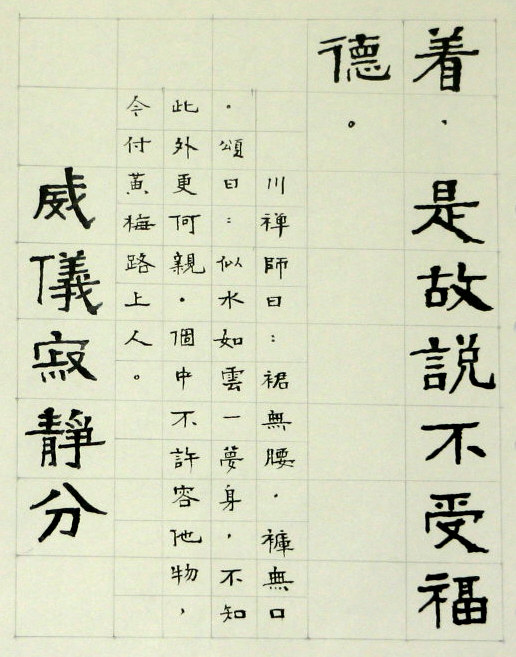 着，是故說不受福
德。
川禅師曰：裙無腰，褲無口
。頌曰：似水如雲一夢身，不知
此外更何親。個中不許容他物，
今付黃梅路上人。
威儀寂靜分